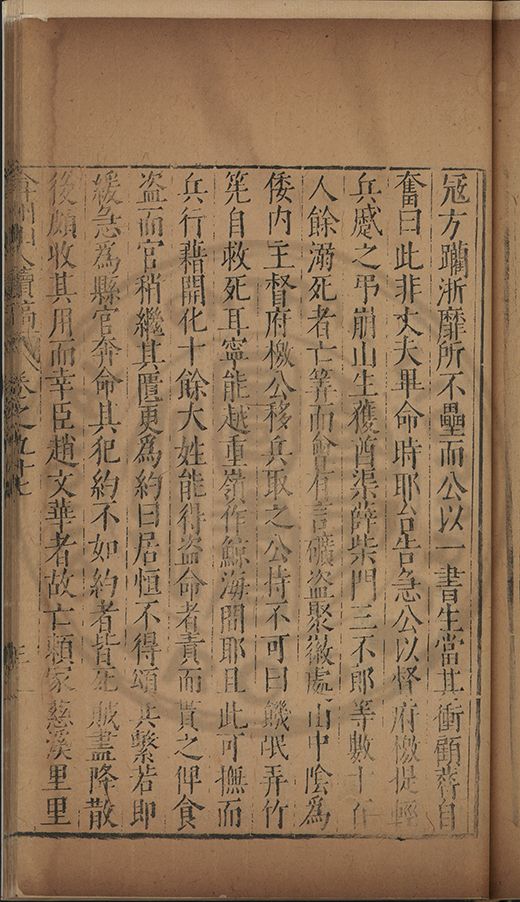 寇方躪浙靡所不壘而公以一書生當其衝顧齊自
奮曰此非丈夫畢命時耶台告急公以督府檄提輕
兵蹙之弔崩山生獲酋渠薛柴門三不郎等數十百
人餘溺死者亡筭而會有言礦盜聚徽處山中陰為
倭內主督府檄公移兵取之公持不可曰饑氓弄竹
筅自救死耳寧能越重嶺作鯨海間耶且此可撫而
兵行藉開化十餘大姓能得盜命者責而貰之俾食
盜而官稍繼其匱更為約曰居恒不得頌其繫若即
緩急為縣官奔命其犯約不如約者皆死賊盡降散
後頗收其用而幸臣趙文華者故亡賴家慈溪里里
弇州山人續稿 卷之九十七